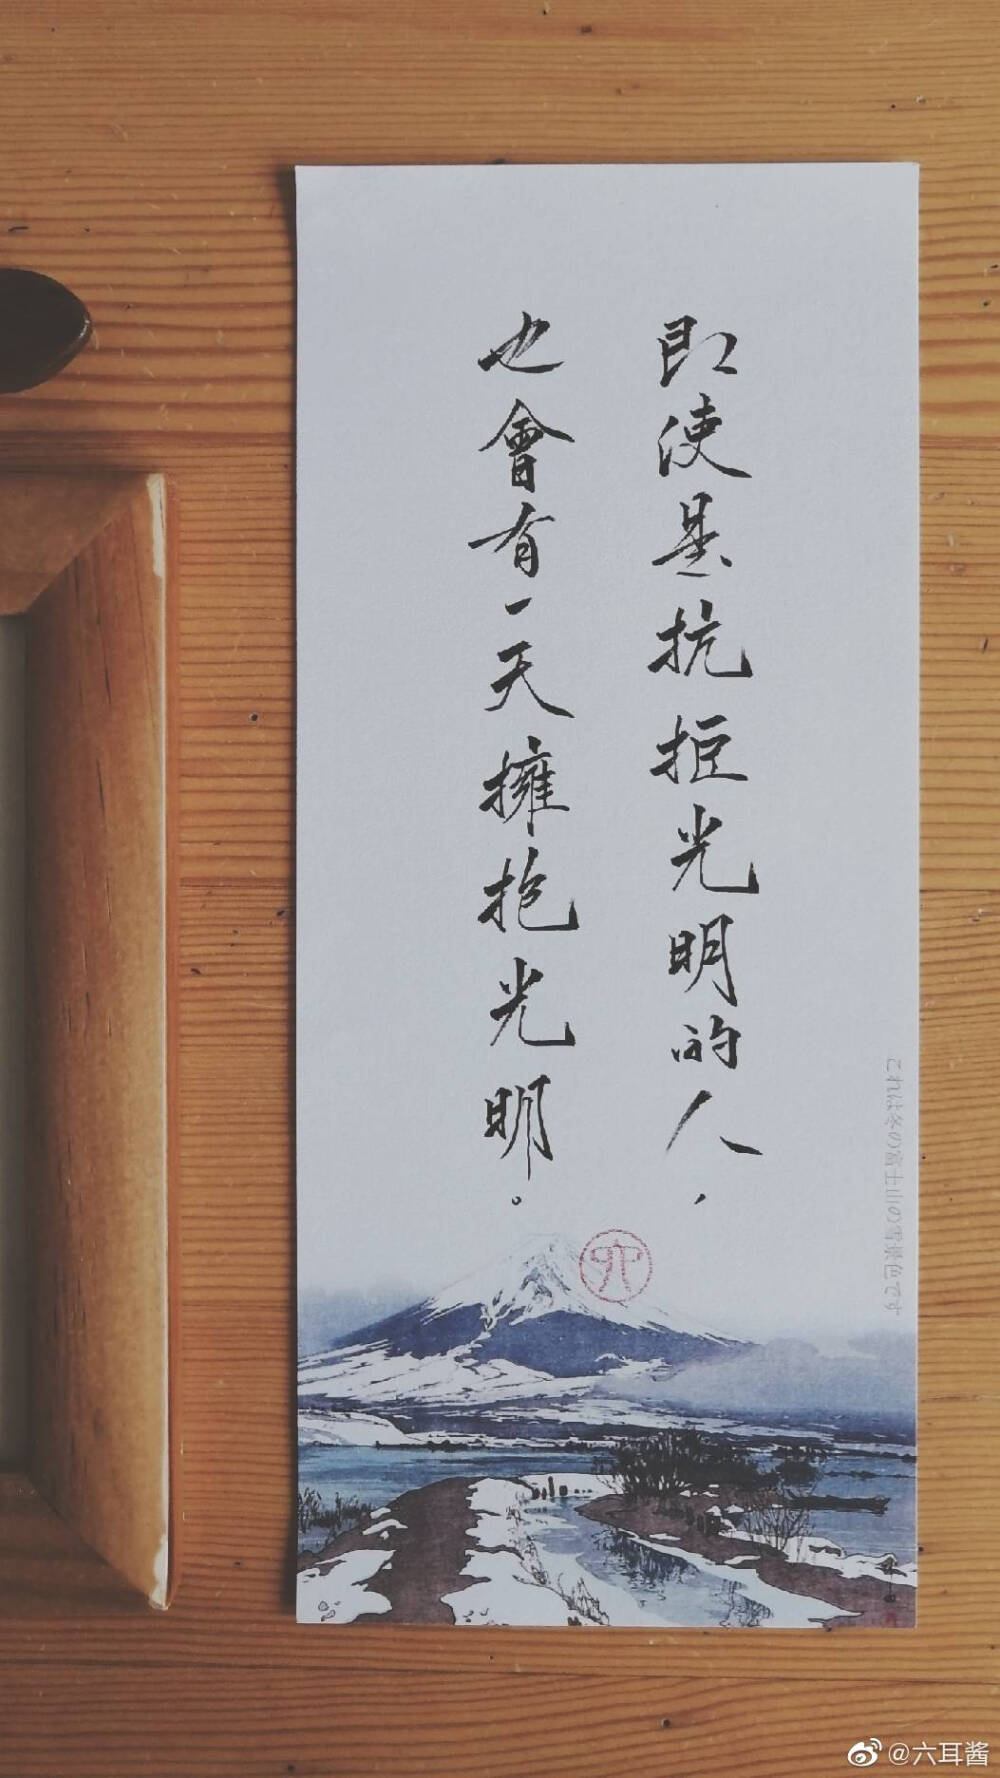 即使是抗拒光明的人，
也會有一天擁抱光明。
これは冬の富士山の雪景色です
六
@六耳酱